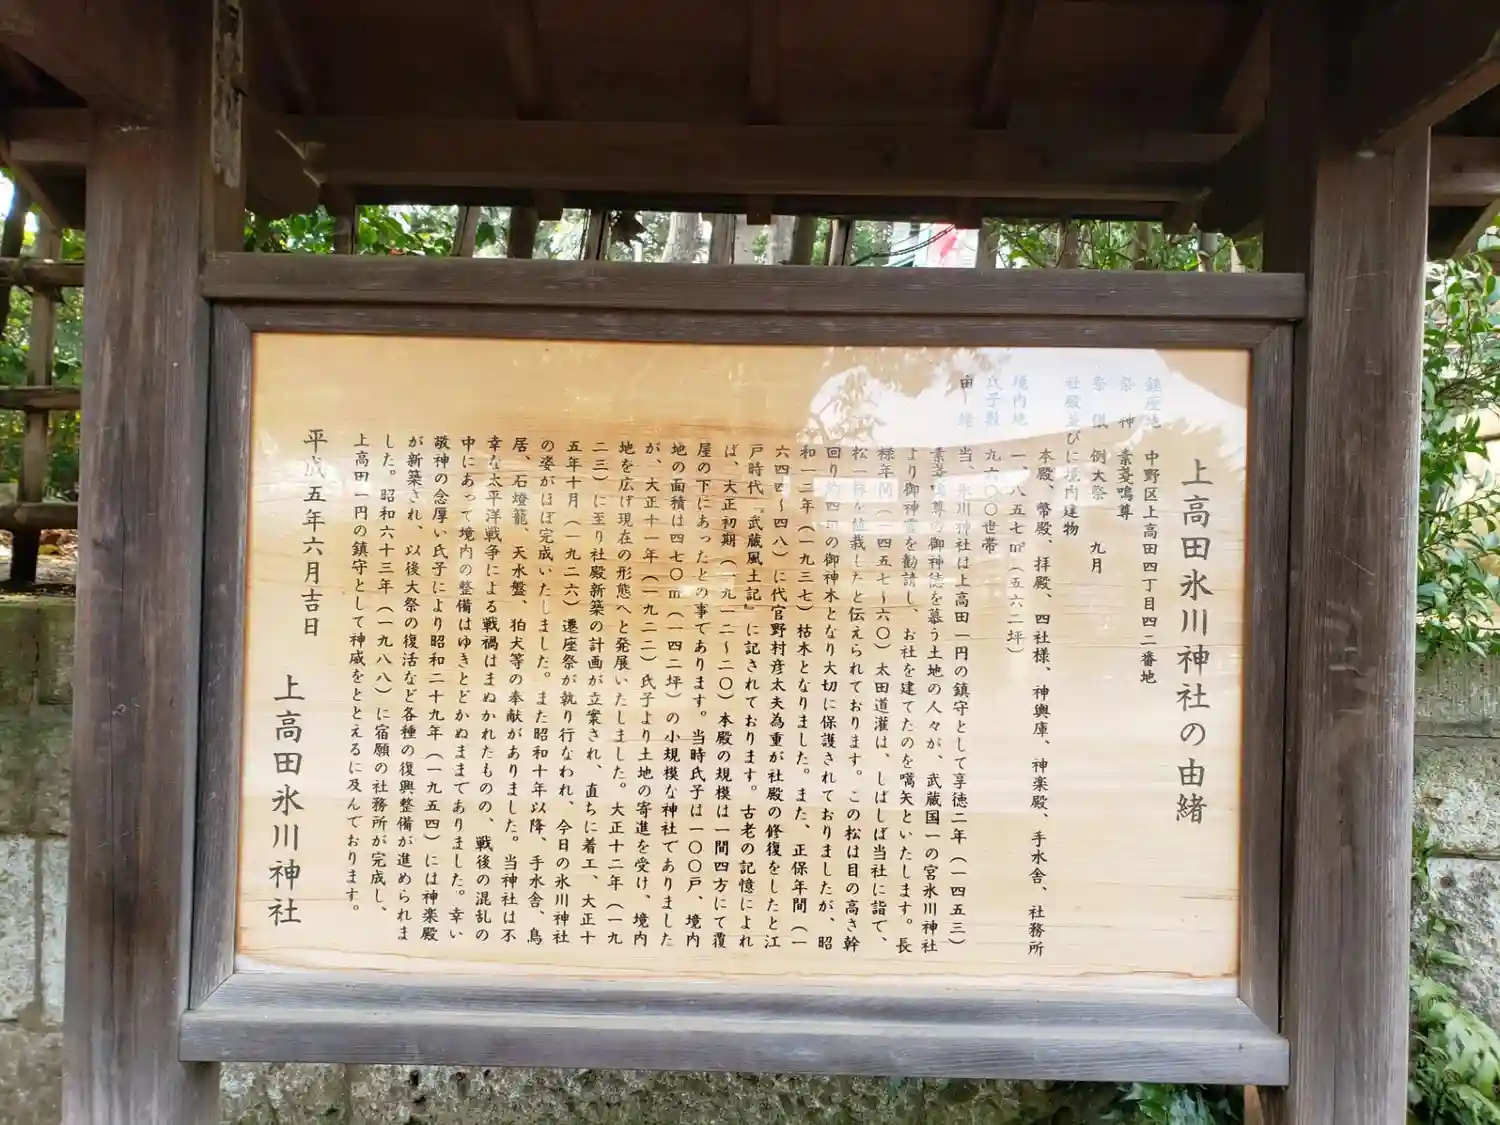 上高田氷川神社の由緒
鎮座地 中野区上高田四丁目四二番地
祭神 素戔嗚尊
祭儀 例大祭 九月
社殿並びに境内建物
本殿、幣殿、拝殿、四社様、神輿庫、神楽殿、手水舎、社務所
境内地 一、八五七㎡(五六二坪)
氏子数 九六〇〇世帯
由緒 当、氷川神社は上高田一円の鎮守として享徳二年(一四五三)
素戔嗚尊の御神徳を慕う土地の人々が、武蔵国一の宮氷川神社
より御神霊を勧請し、お社を建てたのを嚆矢といたします。長
禄年間(一四五七〜六〇)太田道灌は、しばしば当社に詣て、
松一株を植栽したと伝えられております。この松は目の高さ幹
回り約四mの御神木となり大切に保護されておりましたが、昭
和一二年(一九三七)枯木となりました。また、正保年間(一
六四四〜四八)に代官野村彦太夫為重が社殿の修復をしたと江
戸時代『武蔵風土記』に記されております。古老の記憶によれ
ば、大正初期(一九一二〜二〇)本殿の規模は一間四方にて覆
屋の下にあったとの事であります。当時氏子は一〇〇戸、境内
地の面積は四七〇㎡(一四二坪)の小規模な神社でありました
が、大正十一年(一九二二)氏子より土地の寄進を受け、境内
地を広げ現在の形態へと発展いたしました。大正十二年(一九
二三)に至り社殿新築の計画が立案され、直ちに着工、大正十
五年十月(一九二六)遷座祭が執り行なわれ、今日の氷川神社
の姿がほぼ完成いたしました。また昭和十年以降、手水舎、鳥
居、石燈籠、天水盤、狛犬等の奉献がありました。当神社は不
幸な太平洋戦争による戦禍はまぬかれたものの、戦後の混乱の
中にあって境内の整備はゆきとどかぬままでありました。幸い
敬神の念厚い氏子により昭和二十九年(一九五四)には神楽殿
が新築され、以後大祭の復活など各種の復興整備が進められま
した。昭和六十三年(一九八八)に宿願の社務所が完成し、
上高田一円の鎮守として神威をととえるに及んでおります。
平成五年六月吉日
上高田氷川神社